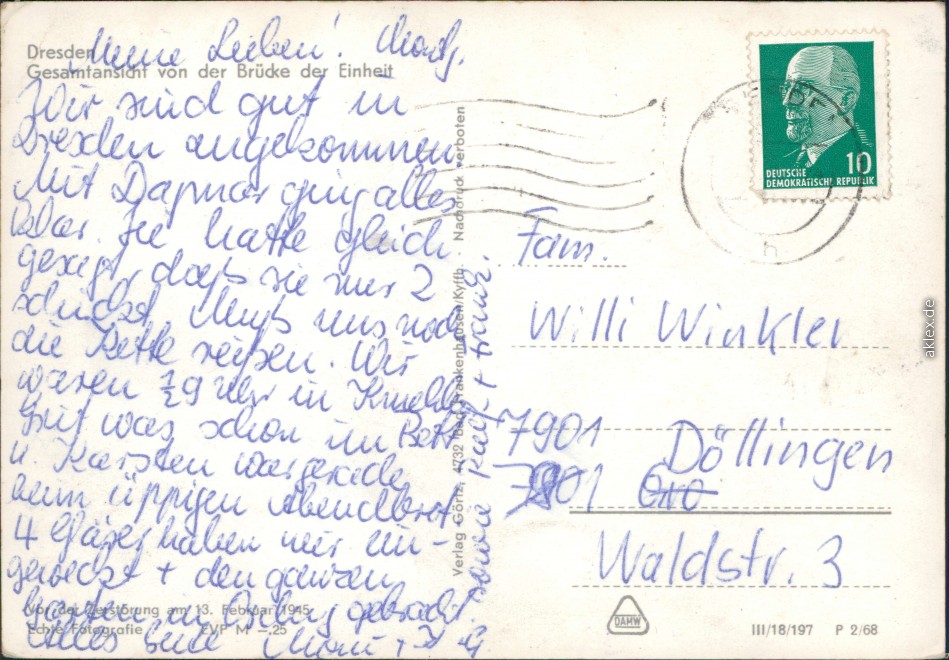 Dresden
Gesamtansicht von der Brücke der Einheit
Meine Lieben!
Wir sind gut in
Dresden angekommen.
Mit Dagmar ging alles
klar. Sie hatte gleich
gesagt, daß sie nur 2
schickt. Muß uns nur
die Kette reißen. Wir
waren ½9 Uhr in
war schon im Bett
u. Karsten war gerade
beim üppigen Abendbrot.
4 Gläser haben wir ein-
geweckt + den ganzen
in gebracht.
Alles Gute
sowie +
Vor der Zerstörung am 13. Februar 1945
Echte Fotografie EVP M -,25
Verlag Göritz, 4732 Bad Frankenhausen/Kyffh. Nachdruck verboten
DEUTSCHE
DEMOKRATISCHE REPUBLIK
10
h
Fam.
Willi Winkler
7901 Döllingen
7901
Waldstr. 3
DAMW
III/18/197 P 2/68
aklex.de